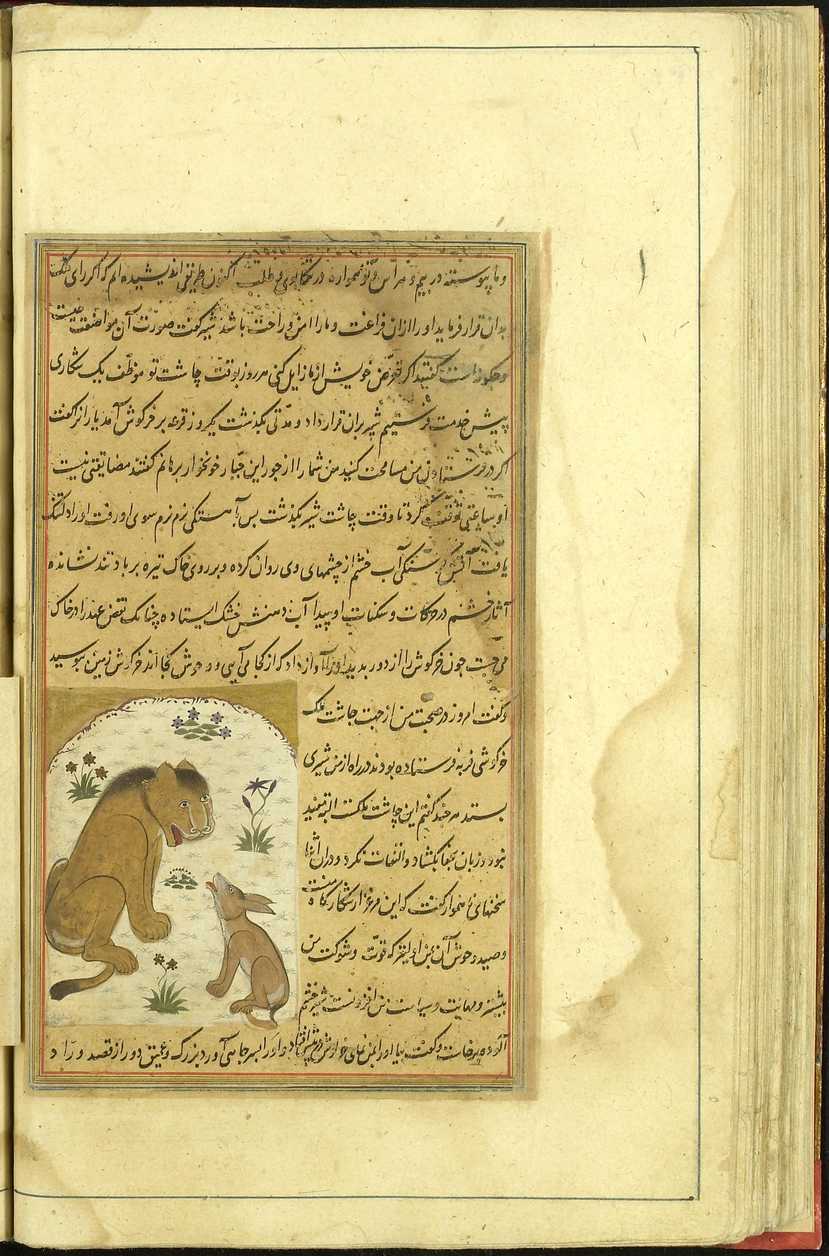 و ما پیوسته در بیم و هراس و تو همواره در تکاپوی و طلب اکنون طریقی اندیشیده ایم که اگر رای ملک
بدان قرار فرماید او را ازان فراغت و ما را امن و راحت باشد شیر گفت صورت آن مواضعت چیست
و چگونه است گفتند اگر تعرض خویش از ما زایل کنی هر روز بوقت چاشت تو موظف یک شکاری
پیش خدمت فرستیم شیر بران قرار داد و مدتی بگذشت یکروز قرعه بر خرگوش آمد یارانرا گفت
اگر در فرستادن من مسامحت کنید من شما را از جور این جبار خونخوار برهانم گفتند مضایقتی نیست
او ساعتی توقف کرد تا وقت چاشت شیر بگذشت پس آهستگی نرم نرم سوی او رفت او را دلتنگ
یافت آتش گرسنگی آب خشم از چشمهای وی روان کرده و بر روی خاک تیره بر باد تند نشانده
آثار خشم در حرکات و سکنات او پیدا آب دهنش خشک ایستاده چنانک نقض عهد را در خاک
می جست چون خرگوش را از دور بدید او را آواز داد که از کجا می آیی و وحوش کجا اند خرگوش زمین ببوسید
و گفت امروز در صحبت من از جهت چاشت ملک
خرگوشی فربه فرستاده بودند در راه از من شیری
بستد هر چند گفتم این چاشت ملکست البته مفید
نبود و زبان بجفا بگشاد و التفات نکرد و دران اثنا
سخنهای ناهموار گفت که این مرغزار شکارگاه منست
و صید وحوش آن بمن اولیتر که قوت و شوکت من
بیشتر و مهابت و سیاست من افزونست شیر خشم
آلوده برخاست و گفت بیا او را بمن نمای خرگوش در پیش افتاد و او را بسر چاهی آورد بزرگ و عمیق دور از قصد و راد